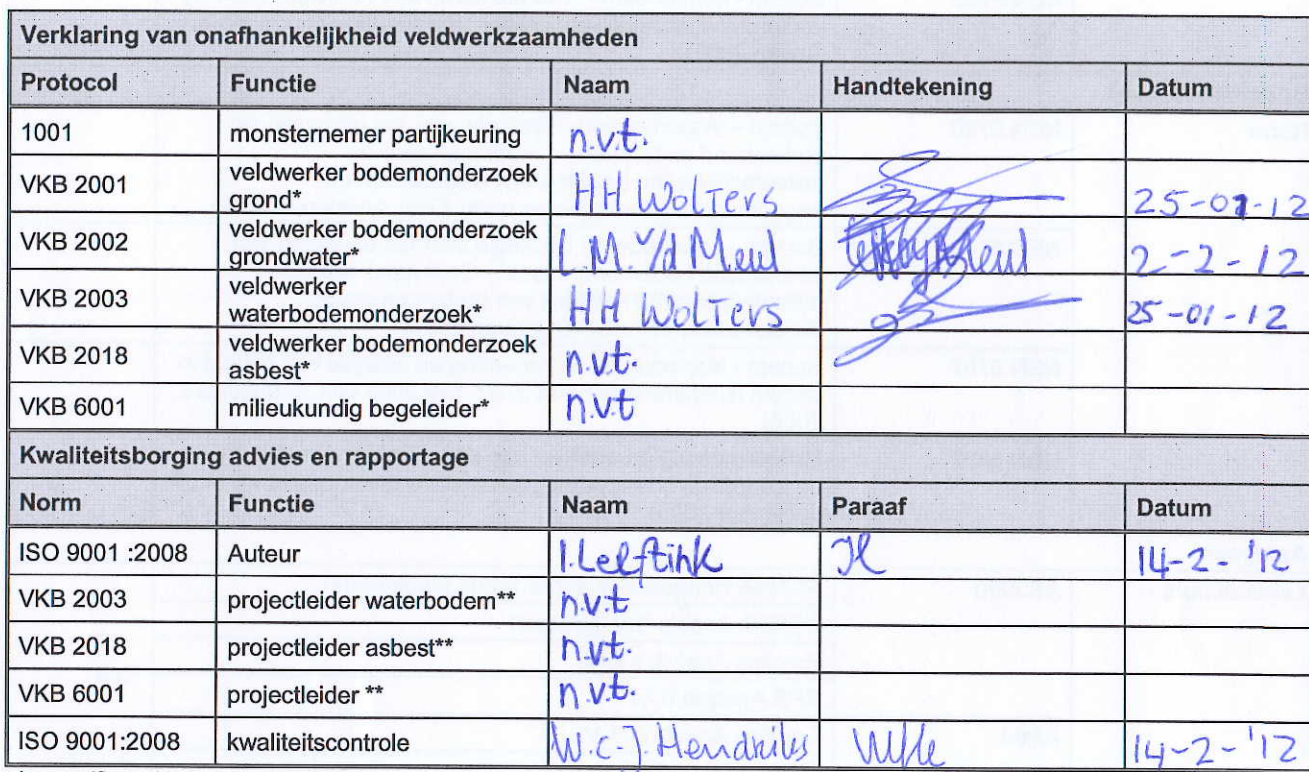 Verklaring van onafhankelijkheid veldwerkzaamheden
Protocol Functie Naam Handtekening Datum
1001 monsternemer partijkeuring n.v.t.
VKB 2001 veldwerker bodemonderzoek grond* HH Wolters 25-01-12
VKB 2002 veldwerker bodemonderzoek grondwater* L.M. v/d Meul 2-2-12
VKB 2003 veldwerker waterbodemonderzoek* HH Wolters 25-01-12
VKB 2018 veldwerker bodemonderzoek asbest* n.v.t.
VKB 6001 milieukundig begeleider* n.v.t
Kwaliteitsborging advies en rapportage
Norm Functie Naam Paraaf Datum
ISO 9001 :2008 Auteur I. Leeftink 14-2-'12
VKB 2003 projectleider waterbodem** n.v.t
VKB 2018 projectleider asbest** n.v.t.
VKB 6001 projectleider ** n.v.t.
ISO 9001:2008 kwaliteitscontrole W.C.J. Hendriks 14-2-'12